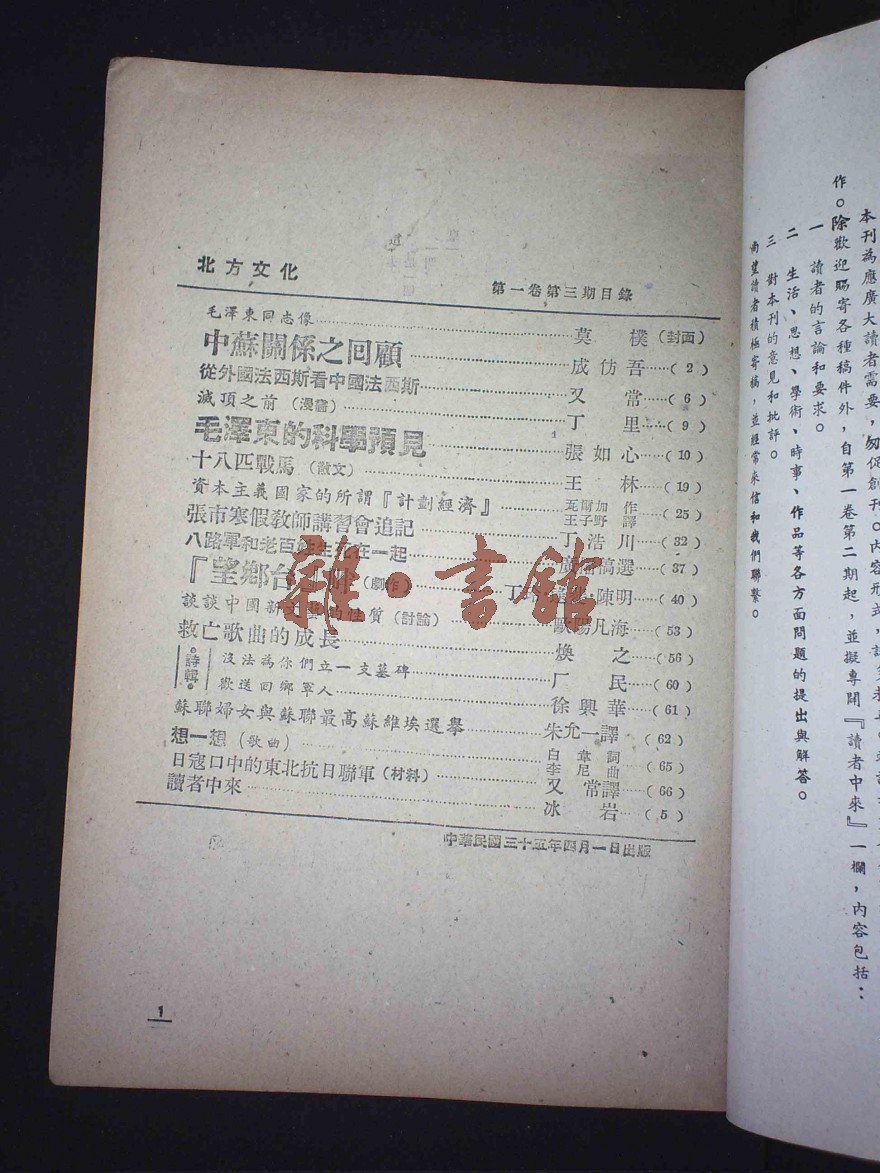 北方文化
第一卷第三期目錄
毛澤東同志像 莫樸(封面)
中蘇關係之回顧 成仿吾(2)
從外國法西斯看中國法西斯 又常(6)
滅頂之前(漫畵) 丁里(9)
毛澤東的科學預見 張如心(10)
十八匹戰馬(散文) 王林(19)
資本主義國家的所謂『計劃經濟』 爾加作 王子野譯(25)
張市寒假敎師講習會追記 丁浩川(32)
八路軍和老百姓生在一起 稿選(37)
『望鄉台 (劇作) 丁 陳明(40)
談談中國新文 的性质(討論) 歐陽凡海(53)
救亡歌曲的成長 煥之(56)
詩輯
沒法為你們立一支墓碑 厂民(60)
歡送回鄉軍人 徐興華(61)
蘇聯婦女與蘇聯最高蘇維埃選舉 朱允一譯(62)
想一想(歌曲) 白韋詞 李尼曲(65)
日寇口中的東北抗日聯軍(材料) 又常譯(66)
讀者中來 冰岩(5)
中華民國三十五年四月一日出版
1
雜·書館
本刊為應廣大讀者需要,匆促創刊。內容形式,
作。除歡迎賜寄各種稿件外,自第一卷第二期起,並擬專闢『讀者中來』一欄,內容包括:
一 讀者的言論和要求。
二 生活、思想、學術、時事、作品等各方面問題的提出與解答。
三 對本刊的意見和批評。
尚望讀者積極寄稿,並經常來信和我們聯繫。